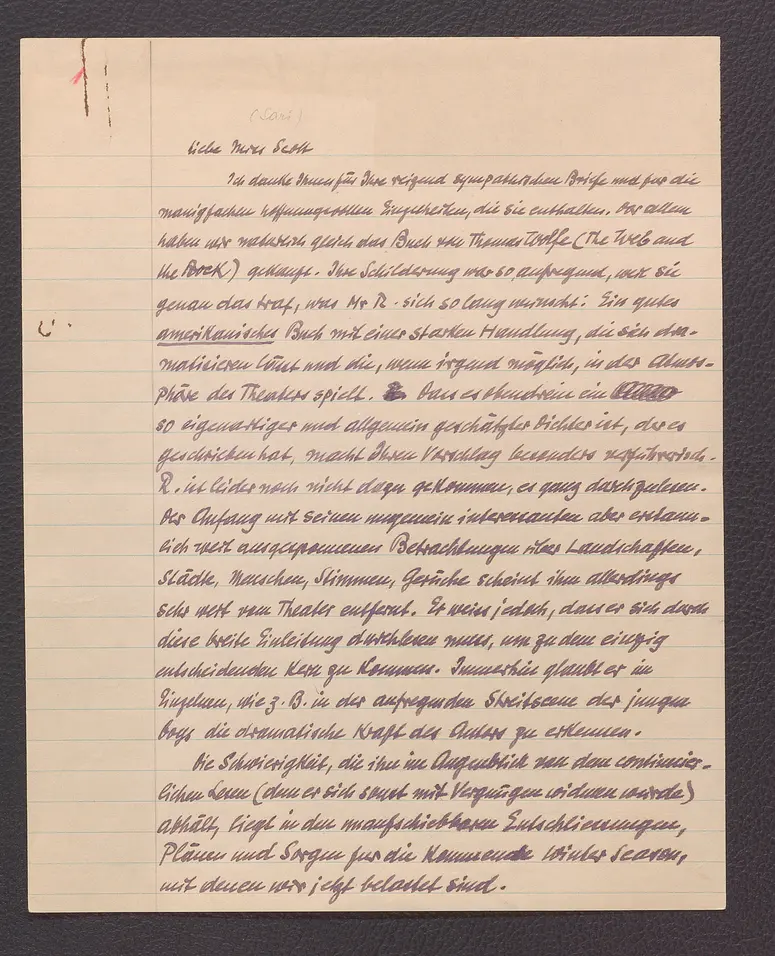 (Sari)
Liebe Miss Scott
Ich danke Ihnen für Ihre reizend sympathischen Briefe und für die
manigfachen hoffnungsvollen Einzelheiten, die sie enthalten. Vor allem
haben wir natürlich gleich das Buch von Thomas Wolfe (The Web and
the Rock) gekauft. Ihre Schilderung war so aufregend, weil sie
genau das traf, was Mr R. sich so lang wünscht: Ein gutes
amerikanisches Buch mit einer starken Handlung, die sich dra-
matisieren lässt und die, wenn irgend möglich, in der Atmos-
phäre des Theaters spielt. Dass es obendrein ein
so eigenartiger und allgemein geschätzter Dichter ist, der es
geschrieben hat, macht Ihren Vorschlag besonders verführerisch.
R. ist leider noch nicht dazu gekommen, es ganz durchzulesen.
Der Anfang mit seinen ungemein interessanten aber erstaun-
lich weit ausgesponnenen Betrachtungen über Landschaften,
Städte, Menschen, Stimmen, Gerüche scheint ihm allerdings
sehr weit vom Theater entfernt. Er weiss jedoch, dass er sich durch
diese breite Einleitung durchlesen muss, um zu dem einzig
entscheidenden Kern zu kommen. Immerhin glaubt er im
Einzelnen, wie z. B. in der aufregenden Streitscene der jungen
boys die dramatische Kraft des Autors zu erkennen.
Die Schwierigkeit, die ihn im Augenblick von dem continuier-
lichen Lesen (dem er sich sonst mit Vergnügen widmen würde)
abhält, liegt in den unaufschiebbaren Entschliessungen,
Plänen und Sorgen für die kommende Winter Season,
mit denen wir jetzt belastet sind.